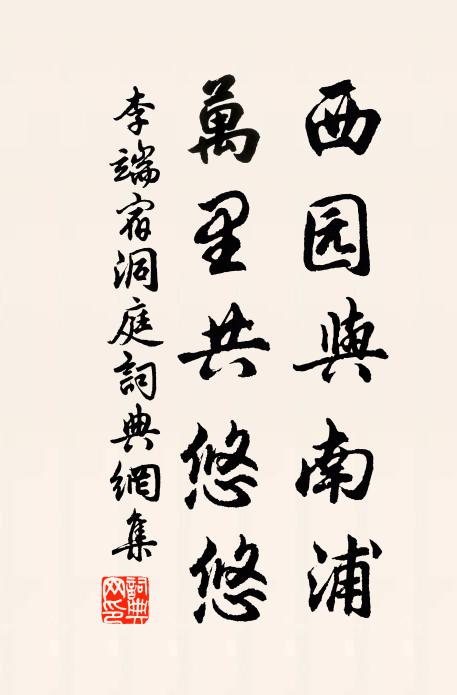 西园與南浦
萬里共悠悠
李端宿洞庭詞典網集
詞典網印